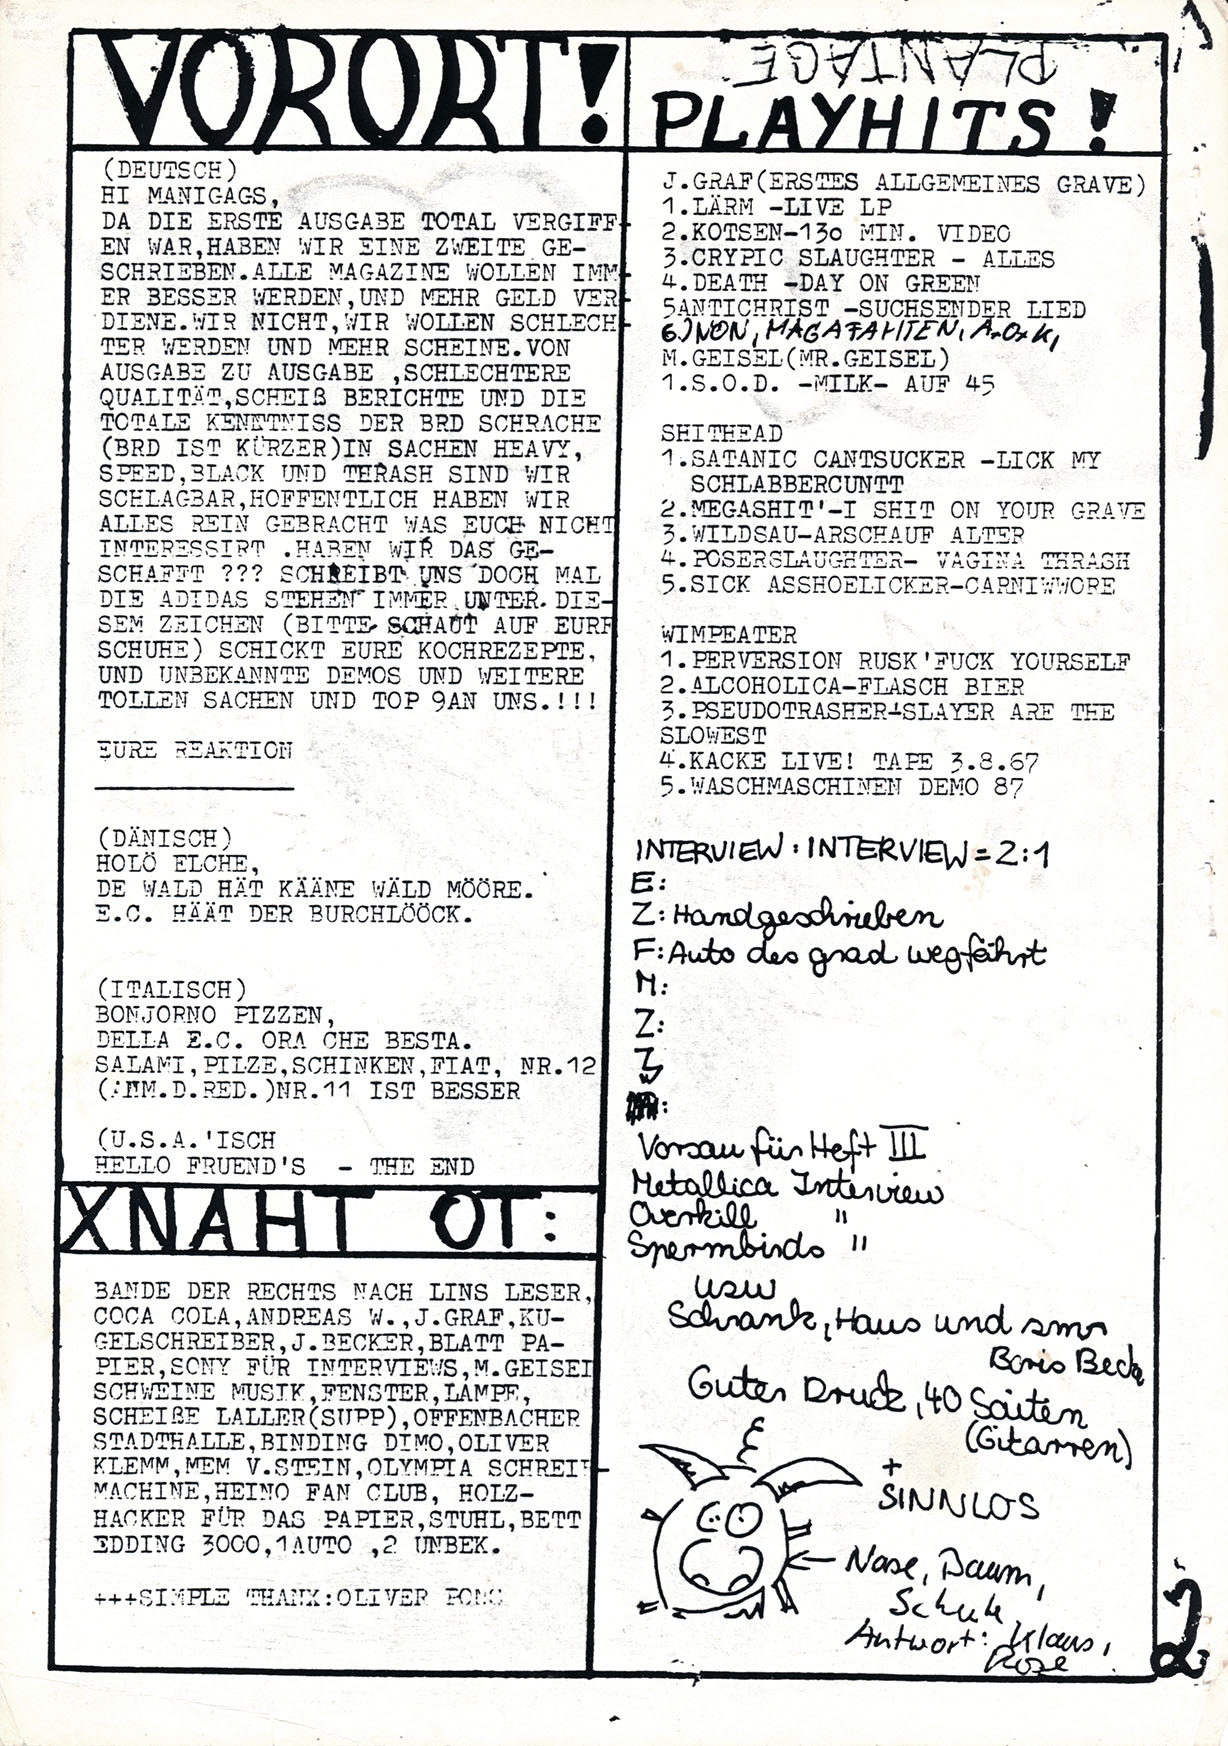 VORORT!
(DEUTSCH)
HI MANIGAGS,
DA DIE ERSTE AUSGABE TOTAL VERGIFF-
EN WAR,HABEN WIR EINE ZWEITE GE-
SCHRIEBEN.ALLE MAGAZINE WOLLEN IMM-
ER BESSER WERDEN,UND MEHR GELD VER-
DIENE.WIR NICHT,WIR WOLLEN SCHLECH-
TER WERDEN UND MEHR SCHEINE.VON
AUSGABE ZU AUSGABE ,SCHLECHTERE
QUALITÄT,SCHEIß BERICHTE UND DIE
TOTALE KENETNISS DER BRD SCHRACHE
(BRD IST KÜRZER)IN SACHEN HEAVY,
SPEED,BLACK UND THRASH SIND WIR
SCHLAGBAR,HOFFENTLICH HABEN WIR
ALLES REIN GEBRACHT WAS EUCH NICHT
INTERESSIRT .HABEN WIR DAS GE-
SCHAFFT ??? SCHREIBT UNS DOCH MAL
DIE ADIDAS STEHEN IMMER UNTER DIE-
SEM ZEICHEN (BITTE SCHAUT AUF EURE
SCHUHE) SCHICKT EURE KOCHREZEPTE,
UND UNBEKANNTE DEMOS UND WEITERE
TOLLEN SACHEN UND TOP 9AN UNS.!!!
EURE REAKTION
(DÄNISCH)
HOLÖ ELCHE,
DE WALD HÄT KÄÄNE WÄLD MÖÖRE.
E.C. HÄÄT DER BURCHLÖÖCK.
(ITALISCH)
BONJORNO PIZZEN,
DELLA E.C. ORA CHE BESTA.
SALAMI,PILZE,SCHINKEN,FIAT, NR.12
(ANM.D.RED.)NR.11 IST BESSER
(U.S.A.'ISCH
HELLO FRUEND'S - THE END
XNAHT OT:
BANDE DER RECHTS NACH LINS LESER,
COCA COLA,ANDREAS W.,J.GRAF,KU-
GELSCHREIBER,J.BECKER,BLATT PA-
PIER,SONY FÜR INTERVIEWS,M.GEISEL
SCHWEINE MUSIK,FENSTER,LAMPE,
SCHEIßE LALLER(SUPP),OFFENBACHER
STADTHALLE,BINDING DIMO,OLIVER
KLEMM,MEM V.STEIN,OLYMPIA SCHREIB-
MACHINE,HEINO FAN CLUB, HOLZ-
HACKER FÜR DAS PAPIER,STUHL,BETT
EDDING 3000,1AUTO ,2 UNBEK.
+++SIMPLE THANX:OLIVER
PLANTAGE
PLAYHITS!
J.GRAF(ERSTES ALLGEMEINES GRAVE)
1.LÄRM -LIVE LP
2.KOTSEN-130 MIN. VIDEO
3.CRYPIC SLAUGHTER - ALLES
4.DEATH -DAY ON GREEN
5ANTICHRIST -SUCHSENDER LIED
6.)NON, MAGAFAHTEN, A.O.K,
M.GEISEL(MR.GEISEL)
1.S.O.D. -MILK- AUF 45
SHITHEAD
1.SATANIC CANTSUCKER -LICK MY
SCHLABBERCUNTT
2.MEGASHIT'-I SHIT ON YOUR GRAVE
3.WILDSAU-ARSCHAUF ALTER
4.POSERSLAUGHTER- VAGINA THRASH
5.SICK ASSHOELICKER-CARNIWWORE
WIMPEATER
1.PERVERSION RUSK'FUCK YOURSELF
2.ALCOHOLICA-FLASCH BIER
3.PSEUDOTRASHER-SLAYER ARE THE
SLOWEST
4.KACKE LIVE! TAPE 3.8.67
5.WASCHMASCHINEN DEMO 87
INTERVIEW : INTERVIEW = 2:1
E:
Z: Handgeschrieben
F: Auto des grad wegfährt
M:
Z:
Vorsau für Heft III
Metallica Interview
Overkill "
Spermbirds "
usw
Schrank, Haus und
Boris Beck
Guten Druck, 40 Saiten
(Gitarren)
+
SINNLOS
Nase, Baum,
Schuh,
Antwort: Klaus,
Rose
2